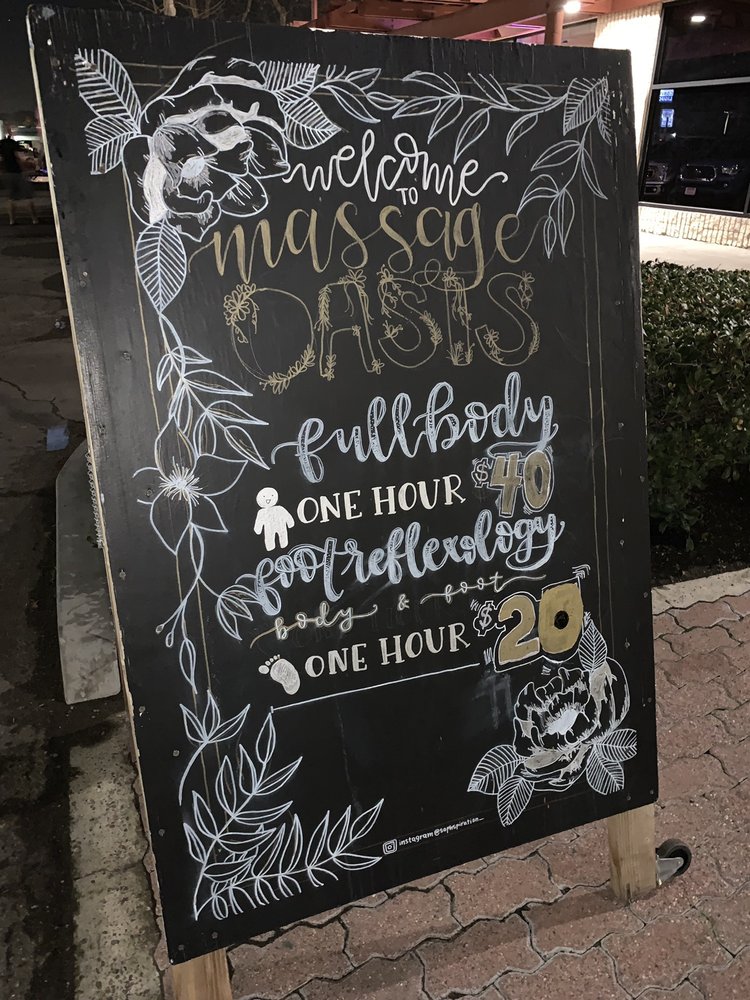 welcome
TO
massage
OASIS
full body
ONE HOUR $40
foot reflexology
body & foot
ONE HOUR $20
instagram @sophspiration_